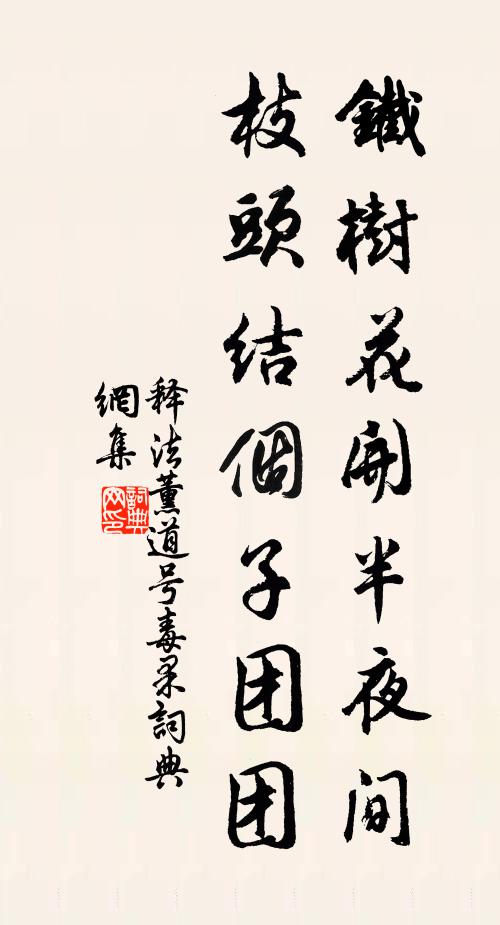 鐵樹花開半夜間
枝頭結個子团团
释法薰道号毒果詞典
網集
詞典网印